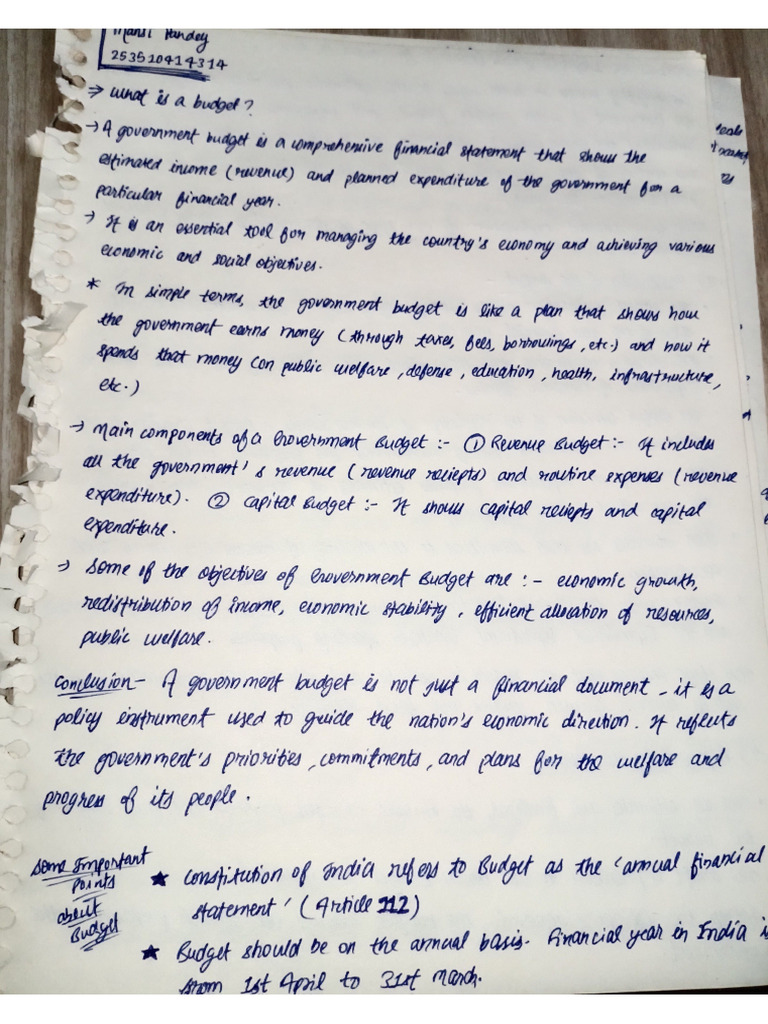 Mansi Pandey
253510414314
⇒ What is a budget?
→ A government budget is a comprehensive financial statement that shows the
estimated income (revenue) and planned expenditure of the government for a
particular financial year.
→ It is an essential tool for managing the country's economy and achieving various
economic and social objectives.
* In simple terms, the government budget is like a plan that shows how
the government earns money (through taxes, fees, borrowings, etc.) and how it
spends that money (on public welfare, defense, education, health, infrastructure,
etc.)
→ Main components of a Government Budget :- ① Revenue Budget :- It includes
all the government's revenue (revenue reciepts) and routine expenses (revenue
expenditure). ② Capital Budget :- It shows capital reciepts and capital
expenditure.
→ Some of the objectives of Government Budget are :- economic growth,
redistribution of income, economic stability, efficient allocation of resources,
public welfare.
Conclusion - A government budget is not just a financial document - it is a
policy instrument used to guide the nation's economic direction. It reflects
the government's priorities, commitments, and plans for the welfare and
progress of its people.
Some Important
Points
about
Budget
★ Constitution of India refers to Budget as the 'annual financial
statement' (Article 112)
★ Budget should be on the annual basis. Financial year in India is
from 1st April to 31st March.